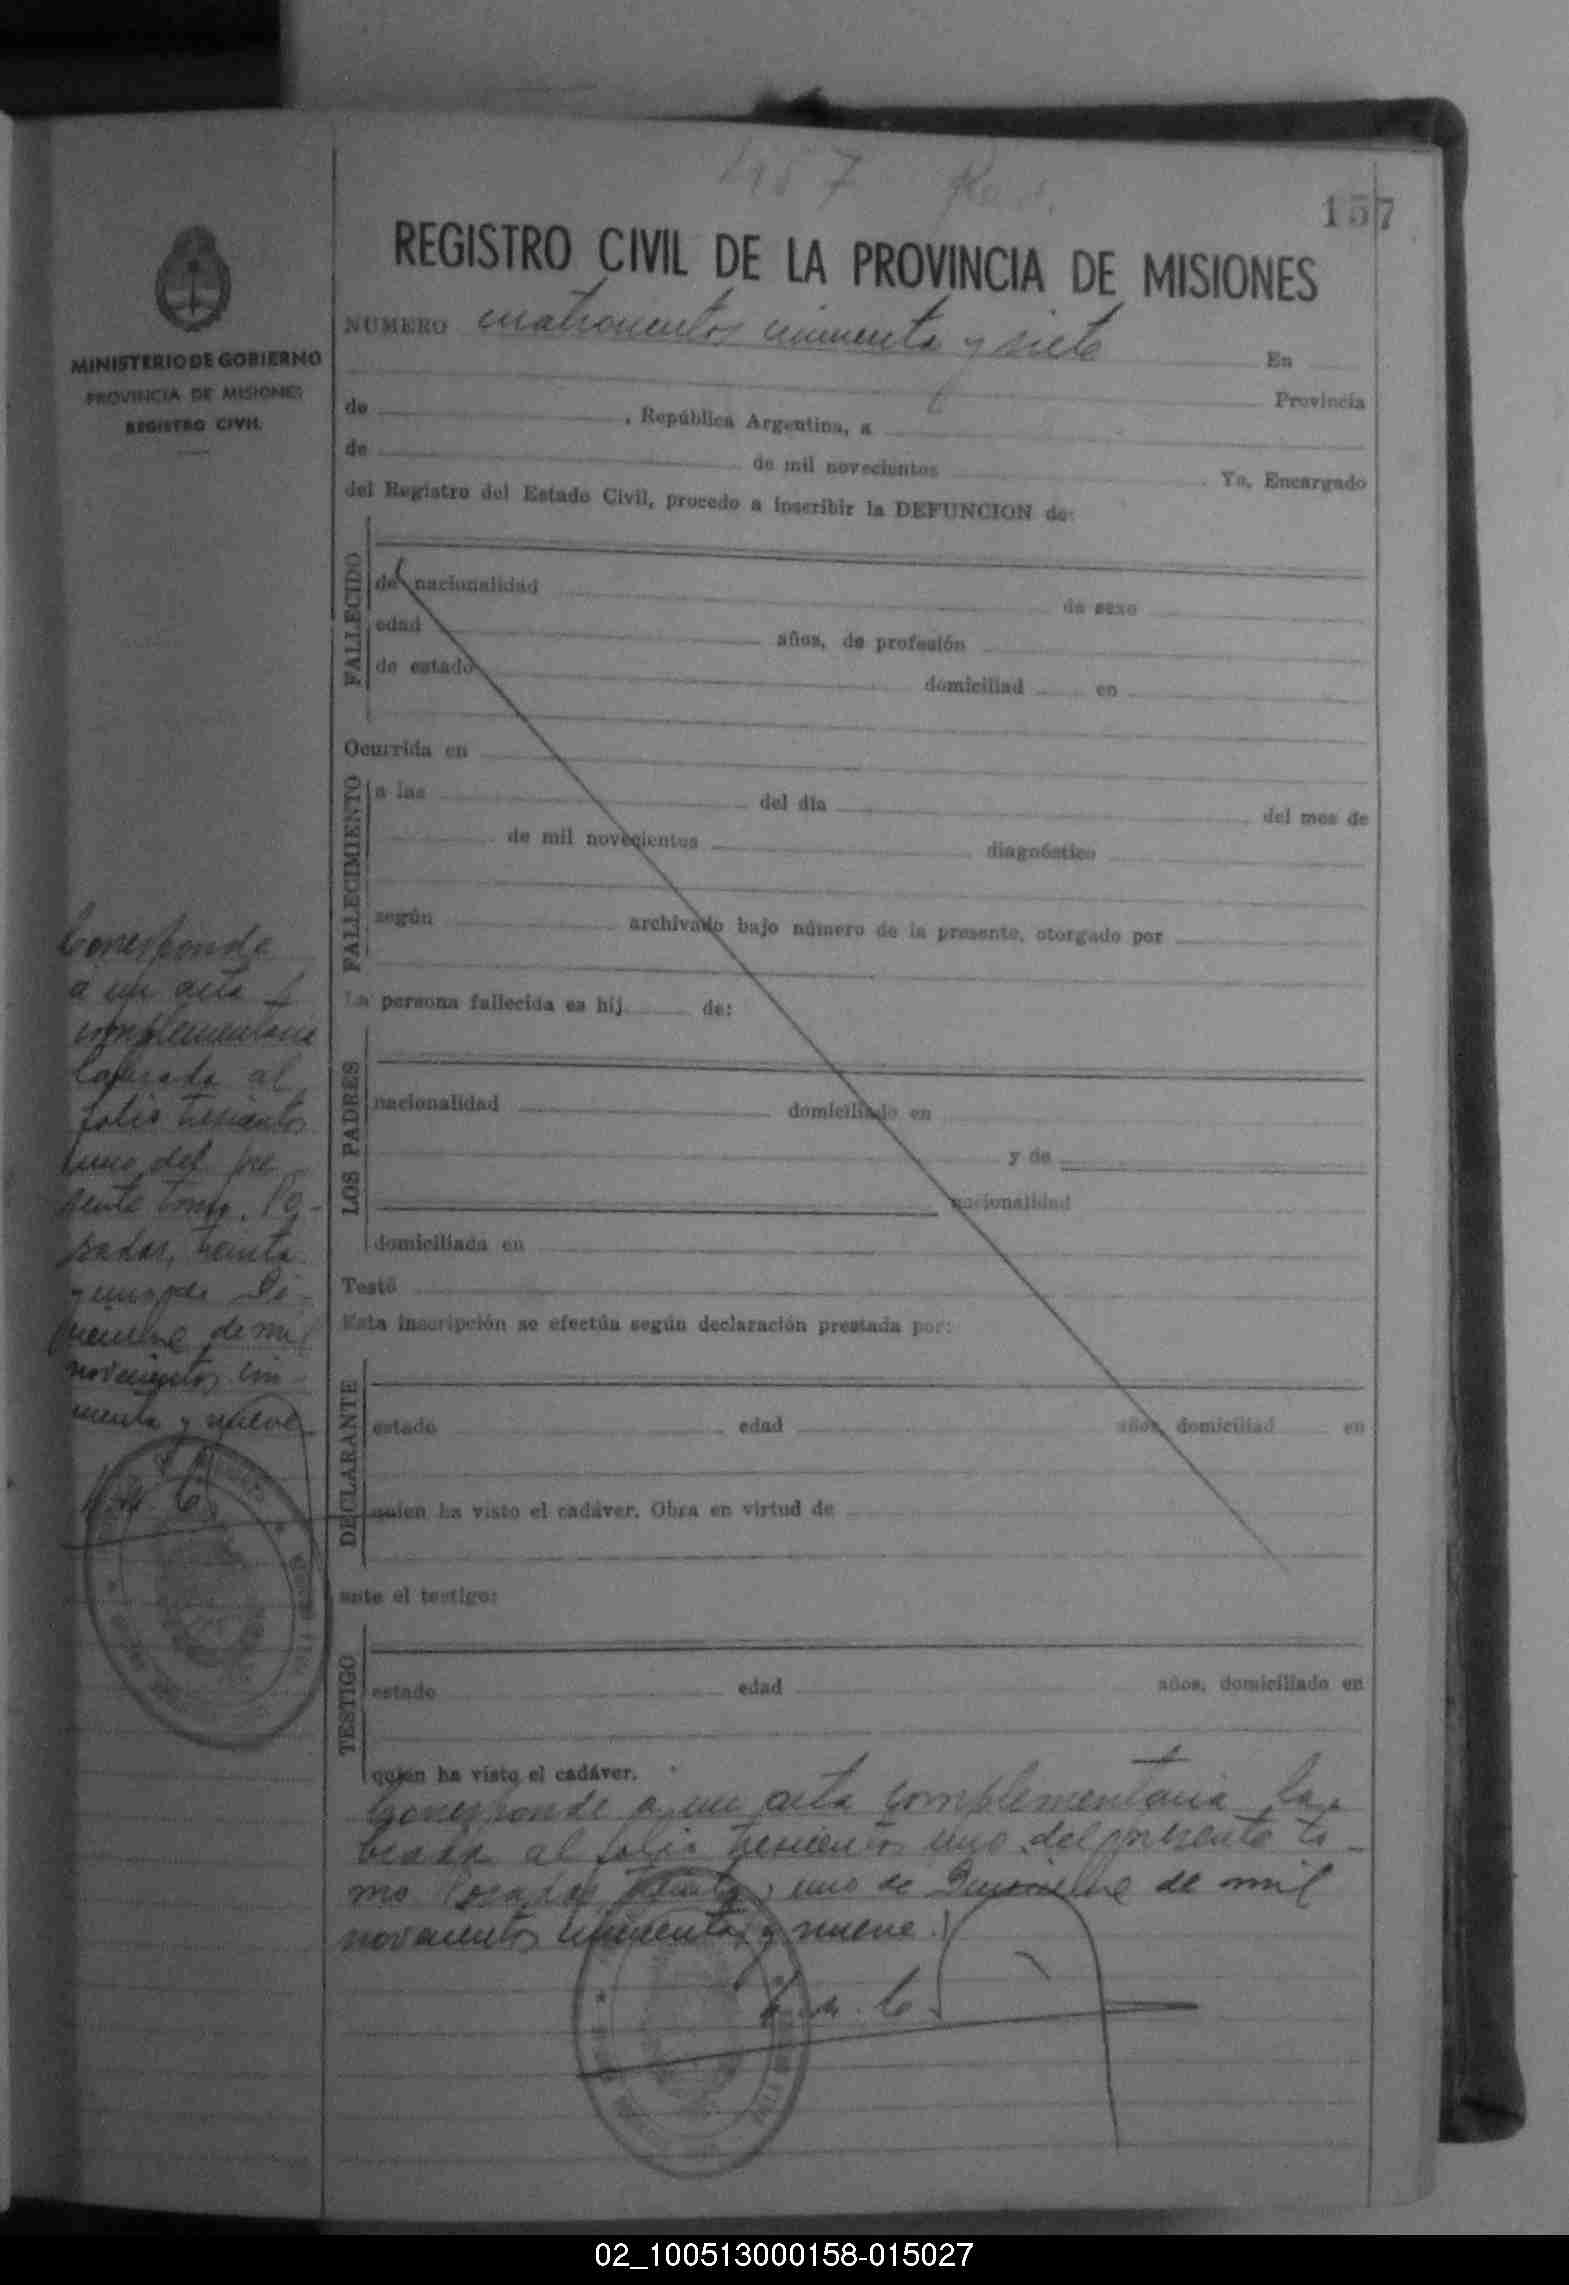 457
157
REGISTRO CIVIL DE LA PROVINCIA DE MISIONES
MINISTERIO DE GOBIERNO
PROVINCIA DE MISIONES
REGISTRO CIVIL
NUMERO cuatrocientos cincuenta y siete En
Provincia
de , República Argentina, a
de de mil novecientos Yo, Encargado
del Registro del Estado Civil, procedo a inscribir la DEFUNCION de:
FALLECIDO
de nacionalidad de sexo
edad años, de profesión
de estado domiciliad en
Ocurrida en
FALLECIMIENTO
a las del día del mes de
de mil novecientos diagnóstico
según archivado bajo número de la presente, otorgado por
La persona fallecida es hij de:
LOS PADRES
nacionalidad domiciliado en
y de
nacionalidad
domiciliada en
Testó
Esta inscripción se efectúa según declaración prestada por:
DECLARANTE
estado edad años, domiciliad en
quien ha visto el cadáver. Obra en virtud de
ante el testigo:
TESTIGO
estado edad años, domiciliado en
quien ha visto el cadáver.
Corresponde a un acta complementaria la-
brada al folio trescientos uno del presente to-
mo Posadas, treinta y uno de Diciembre de mil
novecientos cincuenta y nueve.
Corresponde
a un acta
complementaria
labrada al
folio trescientos
uno del pre-
sente tomo. Po-
sadas, treinta
y uno de Di-
ciembre de mil
novecientos cin-
cuenta y nueve
02_100513000158-015027